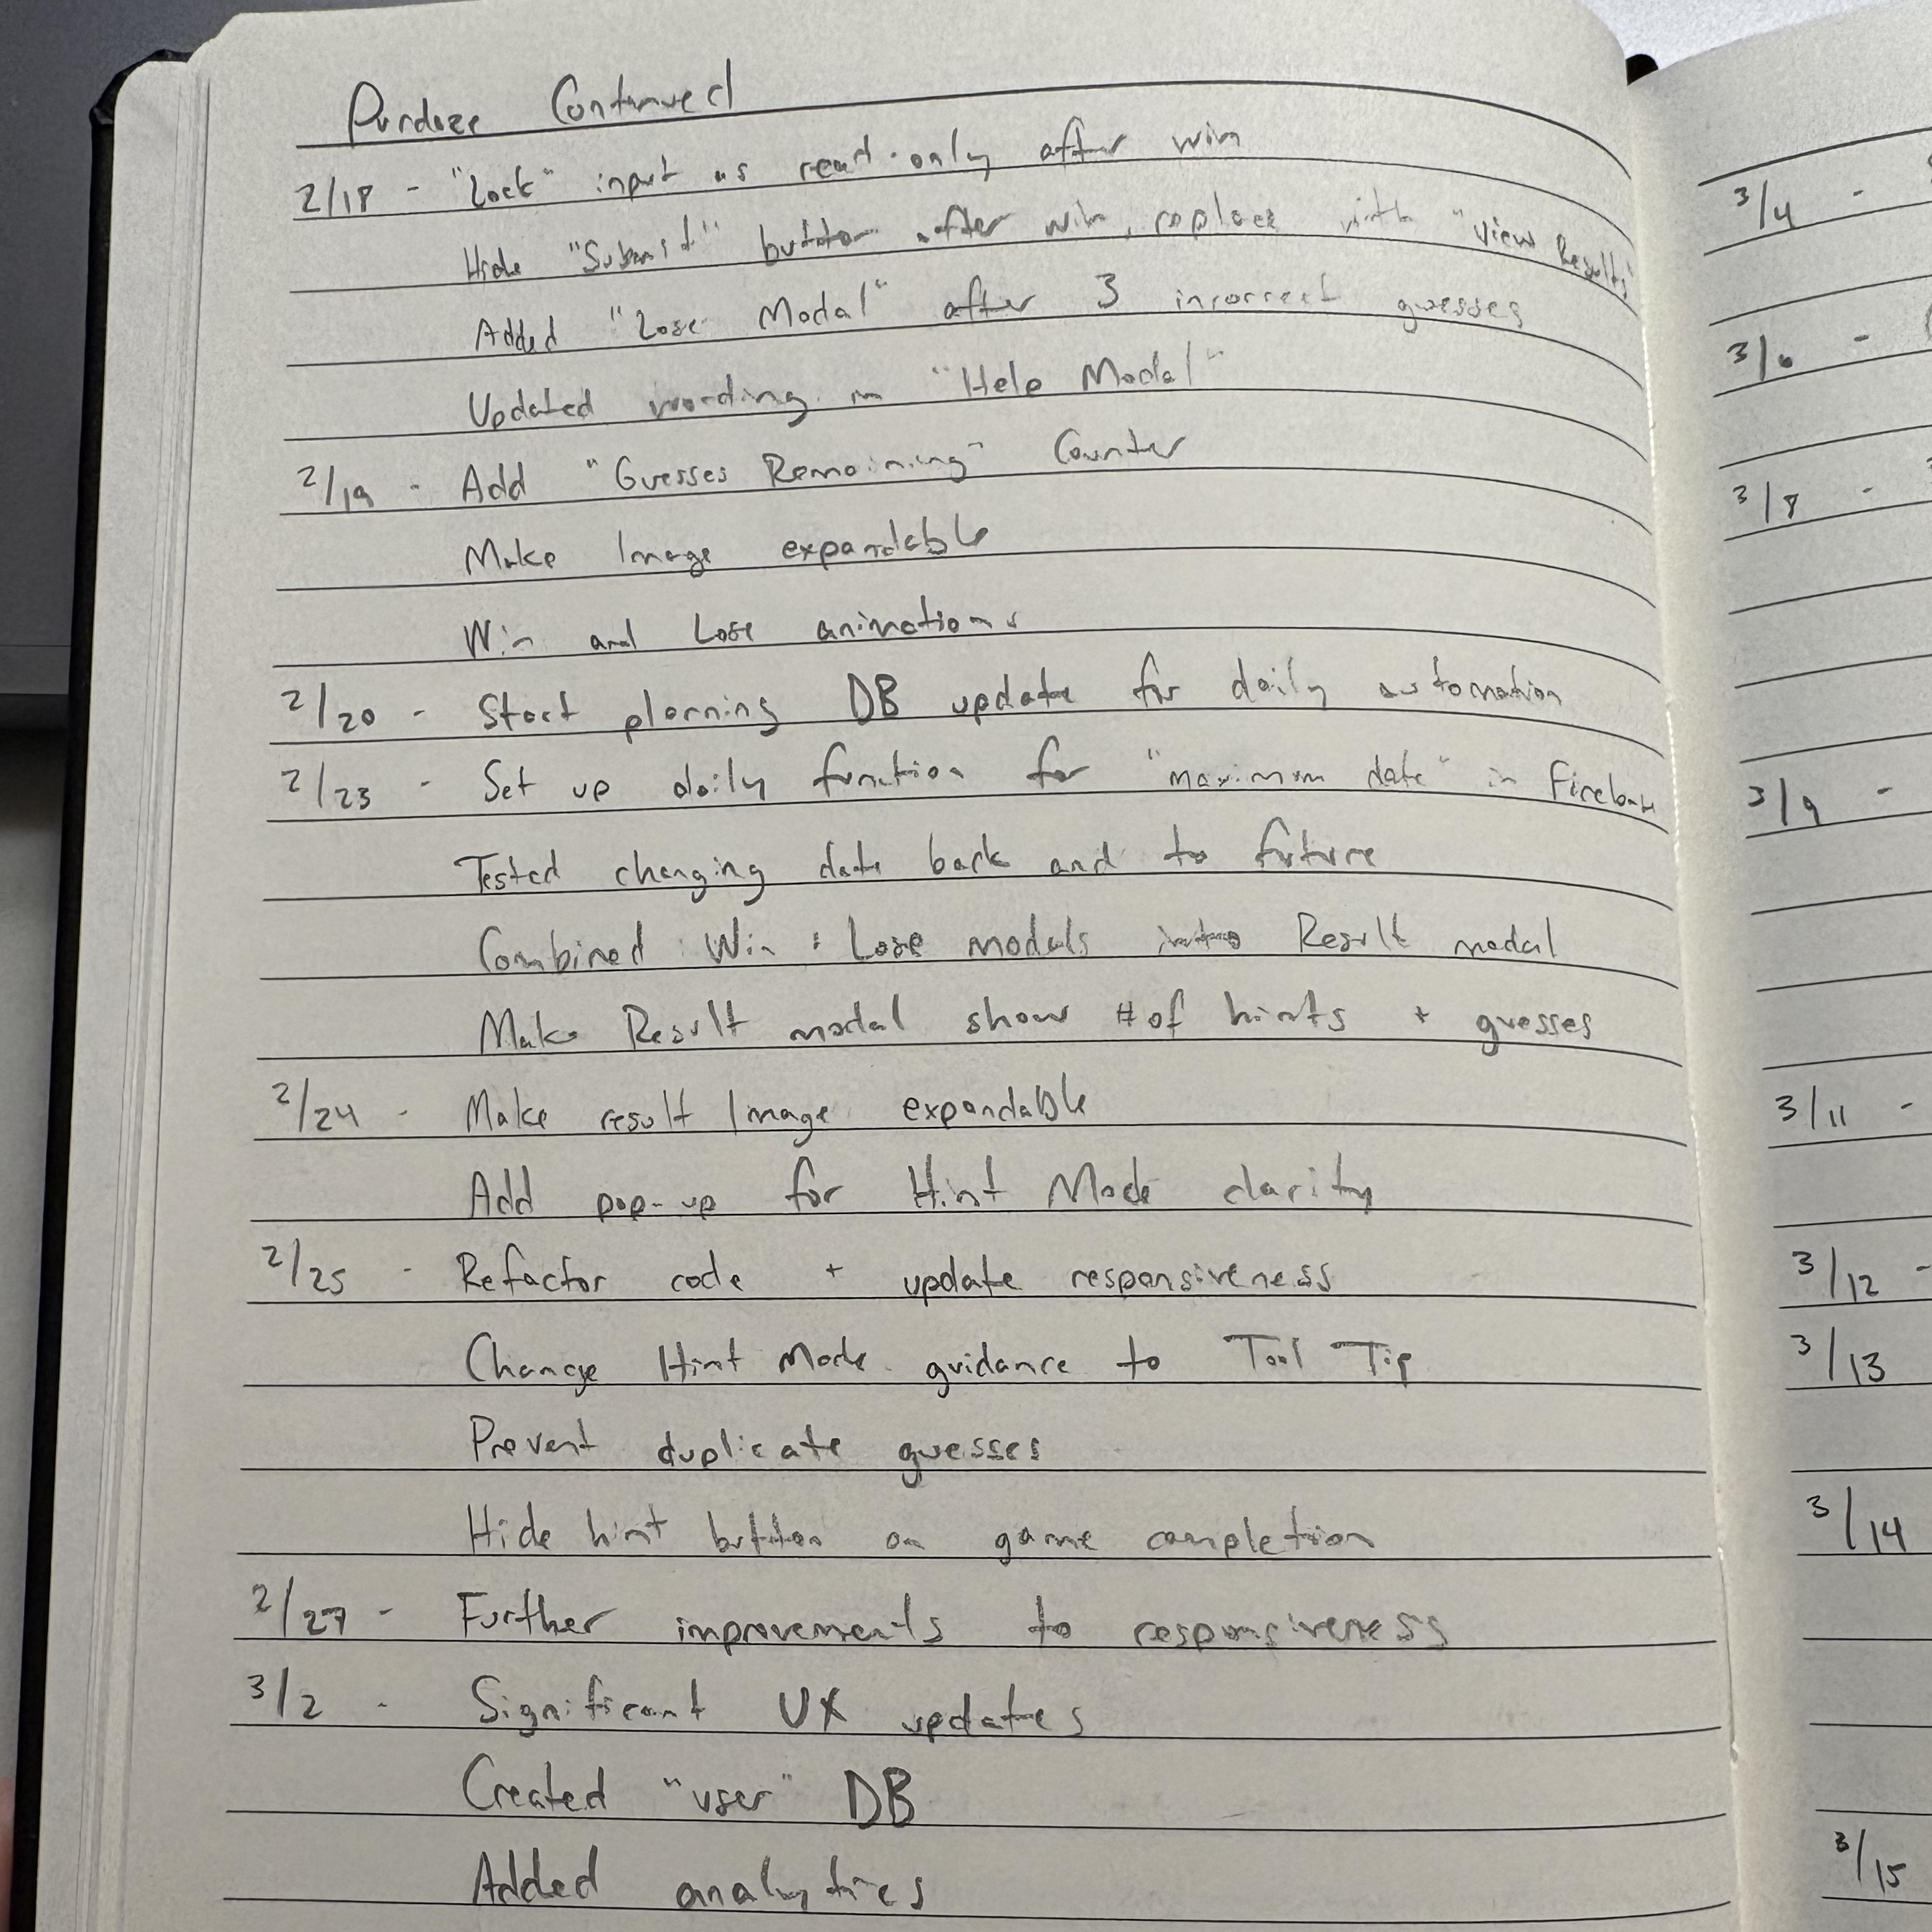 Purdoze Continued
2/18 - "Lock" input as read-only after win
Hide "Submit" button after win, replace with "View Results"
Added "Lose Modal" after 3 incorrect guesses
Updated wording in "Help Modal"
2/19 - Add "Guesses Remaining" Counter
Make Image expandable
Win and Lose animations
2/20 - Start planning DB update for daily automation
2/23 - Set up daily function for "maximum date" in Firebase
Tested changing date back and to future
Combined Win + Lose modals into Result modal
Make Result modal show # of hints + guesses
2/24 - Make result Image expandable
Add pop-up for Hint Mode clarity
2/25 - Refactor code + update responsiveness
Change Hint Mode guidance to Tool Tip
Prevent duplicate guesses
Hide hint button on game completion
2/27 - Further improvements to responsiveness
3/2 - Significant UX updates
Created "user" DB
Added analytics
3/4 -
3/6 -
3/8 -
3/9 -
3/11 -
3/12 -
3/13
3/14
3/15